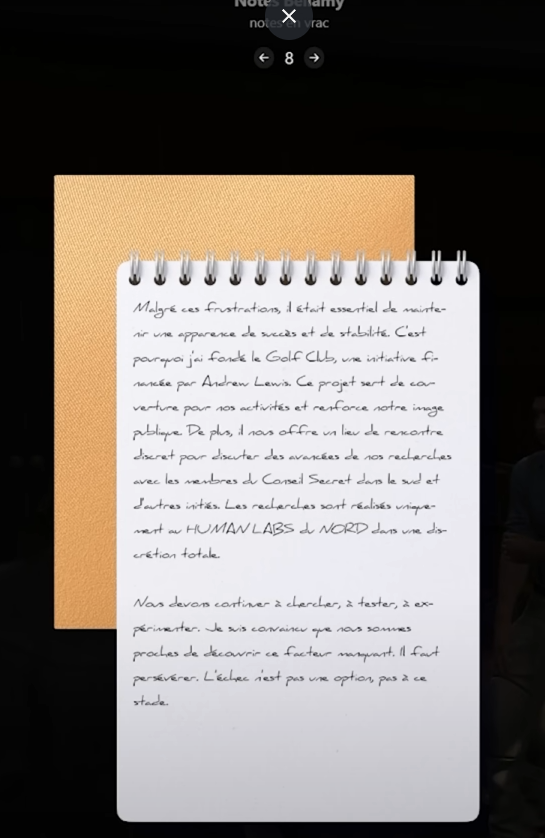 Notes Bellamy
notes en vrac
8
Malgré ces frustrations, il était essentiel de mainte-
nir une apparence de succès et de stabilité. C'est
pourquoi j'ai fondé le Golf Club, une initiative fi-
nancée par Andrew Lewis. Ce projet sert de cou-
verture pour nos activités et renforce notre image
publique. De plus, il nous offre un lieu de rencontre
discret pour discuter des avancées de nos recherches
avec les membres du Conseil Secret dans le sud et
d'autres initiés. Les recherches sont réalisés unique-
ment au HUMAN LABS du NORD dans une dis-
crétion totale.
Nous devons continuer à chercher, à tester, à ex-
périmenter. Je suis convaincu que nous sommes
proches de découvrir ce facteur manquant. Il faut
persévérer. L'échec n'est pas une option, pas à ce
stade.